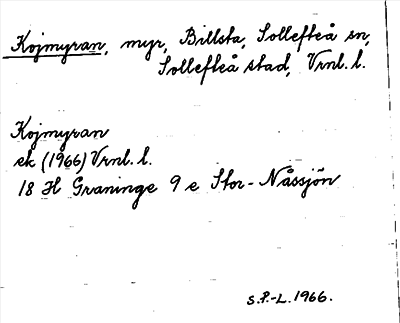 Kojmyran, myr, Billsta, Sollefteå sn,
Sollefteå stad, Vrnl. l.
Kojmyran
ek (1966) Vrnl. l.
18 H Graninge 9 e Stor-Nässjön
S.P.-L. 1966.